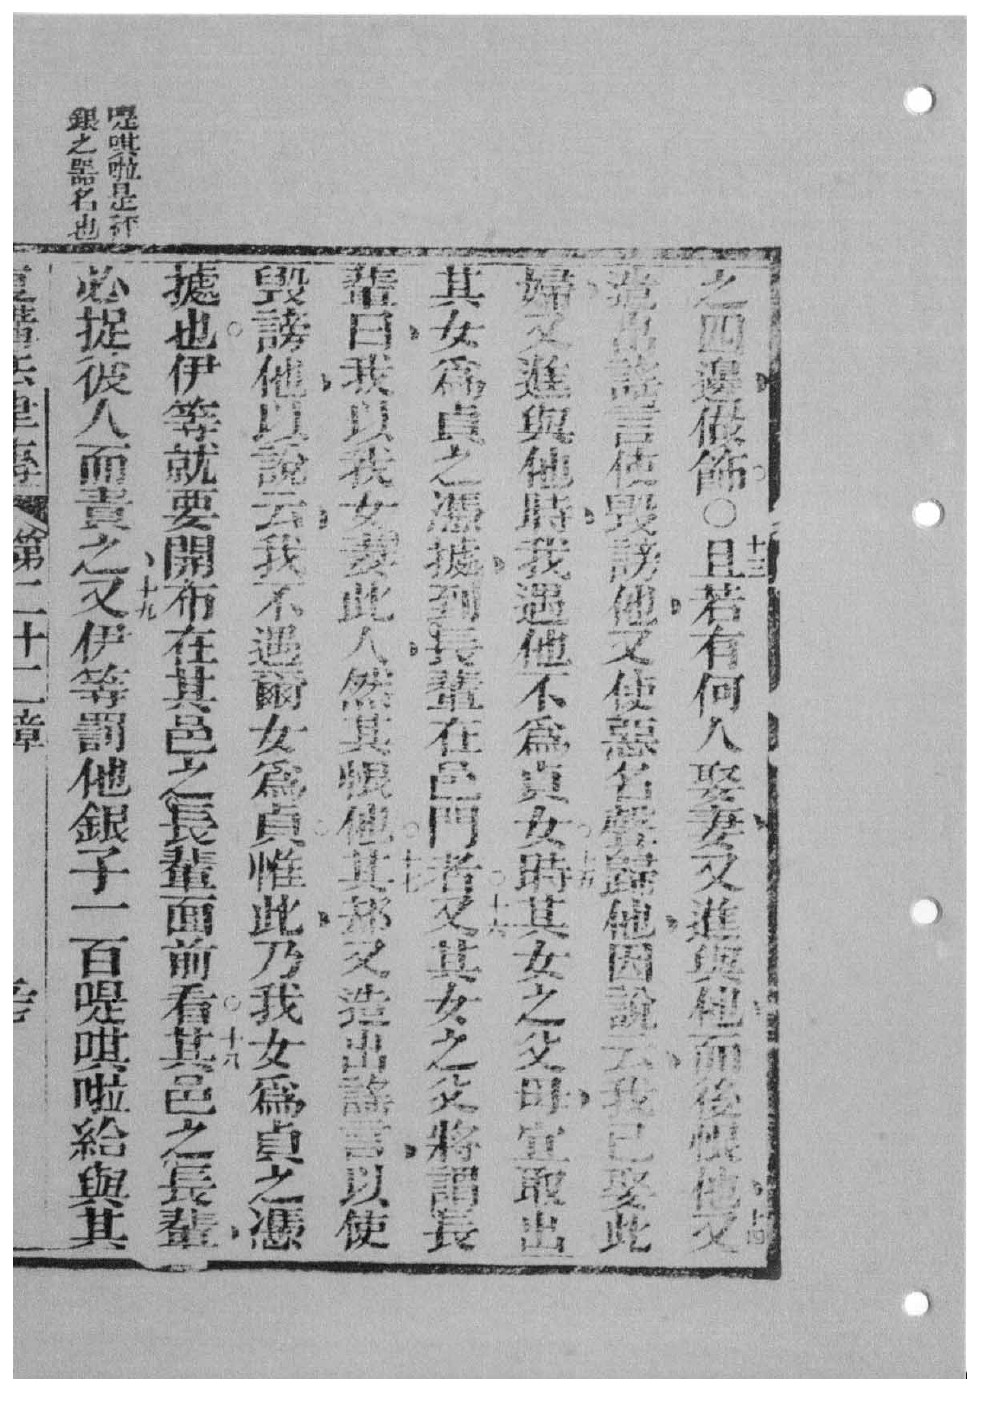 嗁唭啦是秤
銀之器名也
之四邊做飾○十三且若有何人娶妻又進與他而後恨他十四又
造出謠言使毀謗他又使惡名聲歸他因說云我已娶此
婦又進與他時我遇他不爲貞女十五時其女之父母宜取出
其女爲貞之憑據到長輩在邑門者十六又其女之父將謂長
輩曰我以我女妻此人然其恨他十七其郝又造出謠言以使
毀謗他以說云我不遇爾女爲貞惟此乃我女爲貞之憑
據也伊等就要開布在其邑之長輩面前看十八其邑之長輩
必捉彼人而責之十九又伊等罰他銀子一百嗁唭啦給與其
第二十二章